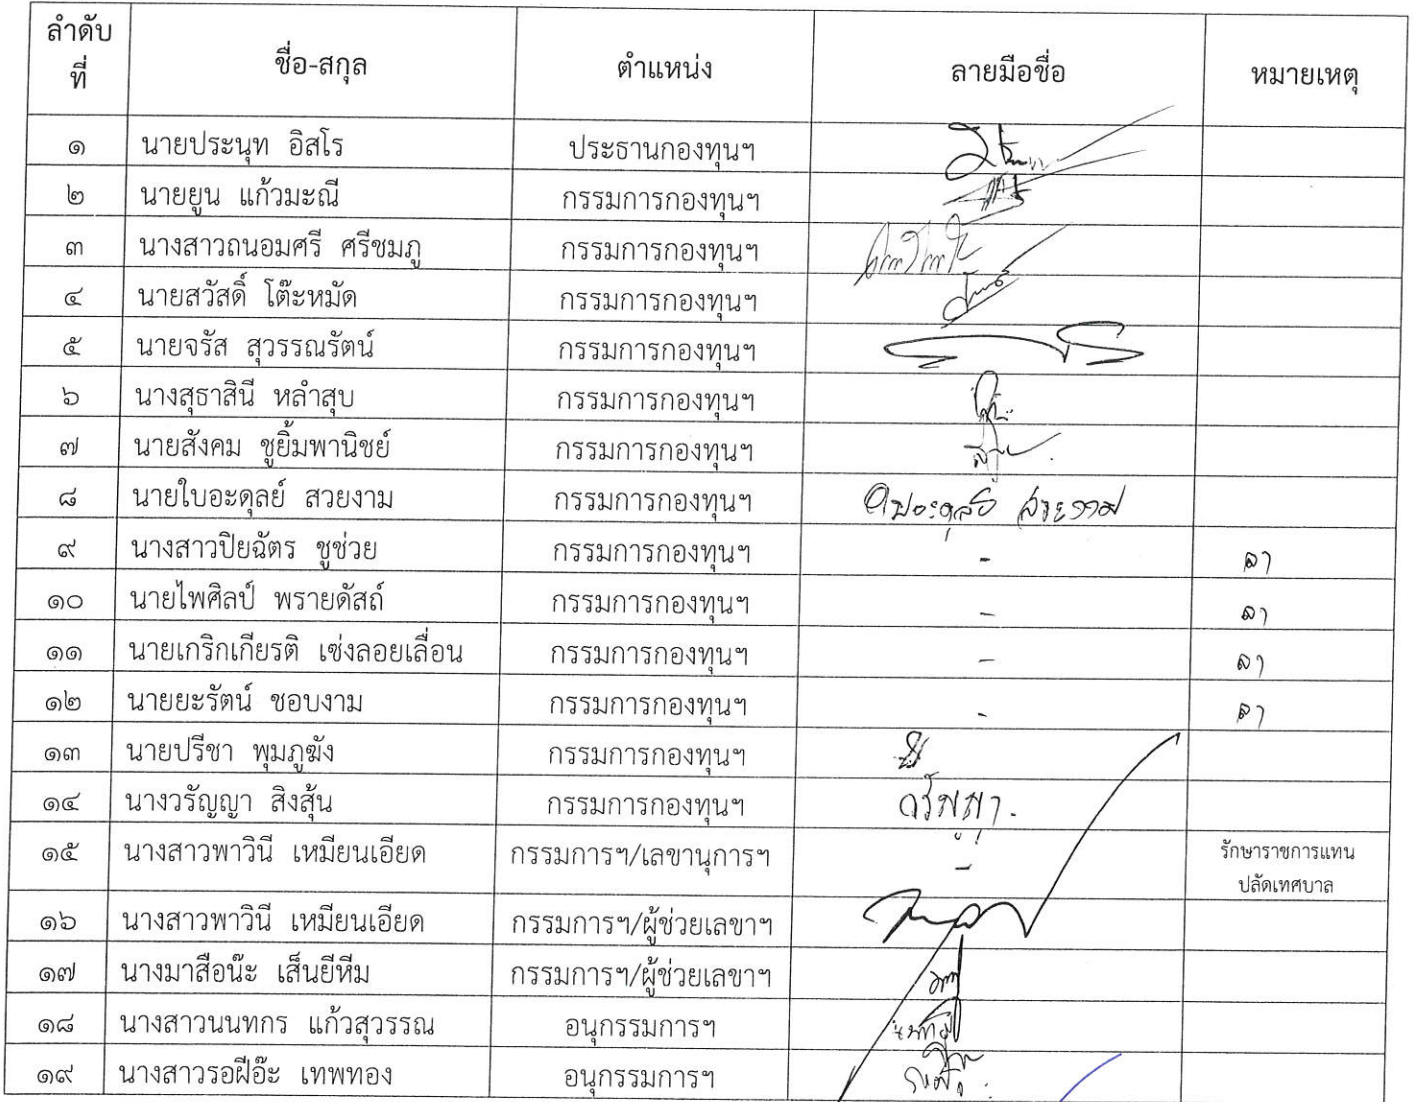 ลำดับ
ที่
ชื่อ-สกุล ตำแหน่ง ลายมือชื่อ หมายเหตุ
๑ นายประนุท อิสโร ประธานกองทุนฯ
๒ นายยูน แก้วมะณี กรรมการกองทุนฯ
๓ นางสาวถนอมศรี ศรีชมภู กรรมการกองทุนฯ
๔ นายสวัสดิ์ โต๊ะหมัด กรรมการกองทุนฯ
๕ นายจรัส สุวรรณรัตน์ กรรมการกองทุนฯ
๖ นางสุธาสินี หลำสุบ กรรมการกองทุนฯ
๗ นายสังคม ชูยิ้มพานิชย์ กรรมการกองทุนฯ
๘ นายใบอะดุลย์ สวยงาม กรรมการกองทุนฯ ใบอะดุลย์ สวยงาม
๙ นางสาวปิยฉัตร ชูช่วย กรรมการกองทุนฯ - ลา
๑๐ นายไพศิลป์ พรายดัสถ์ กรรมการกองทุนฯ - ลา
๑๑ นายเกริกเกียรติ เซ่งลอยเลื่อน กรรมการกองทุนฯ - ลา
๑๒ นายยะรัตน์ ชอบงาม กรรมการกองทุนฯ - ลา
๑๓ นายปรีชา พุมภูฆัง กรรมการกองทุนฯ
๑๔ นางวรัญญา สิงสุ้น กรรมการกองทุนฯ วรัญญา.
๑๕ นางสาวพาวินี เหมียนเอียด กรรมการฯ/เลขานุการฯ - รักษาราชการแทน
ปลัดเทศบาล
๑๖ นางสาวพาวินี เหมียนเอียด กรรมการฯ/ผู้ช่วยเลขาฯ
๑๗ นางมาสือน๊ะ เส็นยีหีม กรรมการฯ/ผู้ช่วยเลขาฯ
๑๘ นางสาวนนทกร แก้วสุวรรณ อนุกรรมการฯ
๑๙ นางสาวรอฝีอ๊ะ เทพทอง อนุกรรมการฯ